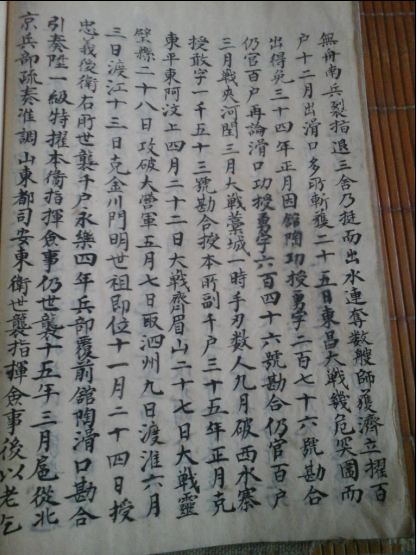 無舟南兵裂指退三舍乃挺而出水連奪數艘師獲濟立擢百
户十二月出滑口多所斬獲二十五日東昌大戰幾危突圍而
出得免三十四年正月因舘陶功授勇字二百七十六號勘合
仍官百户再論滑口功授勇字六百四十六號勘合仍官百户
三月戰夾河閏三月大戰藁城一時手刃数人九月破西水寨
授敢字一千五十三號勘合授本所副千户三十五年正月克
東平東阿汶上四月二十二日大戰齊眉山二十七日大戰靈
壁縣二十八日攻破大營軍五月七日取泗州九日渡淮六月
三日渡江十三日克金川門明世祖即位十一月二十四日授
忠義後衛右所世襲千户永樂四年兵部覆前舘陶滑口勘合
引奏陞一級特擢本衛指揮僉事仍世襲十五年三月扈從北
京兵部疏奏准調山東都司安東衛世襲指揮僉事後以老乞